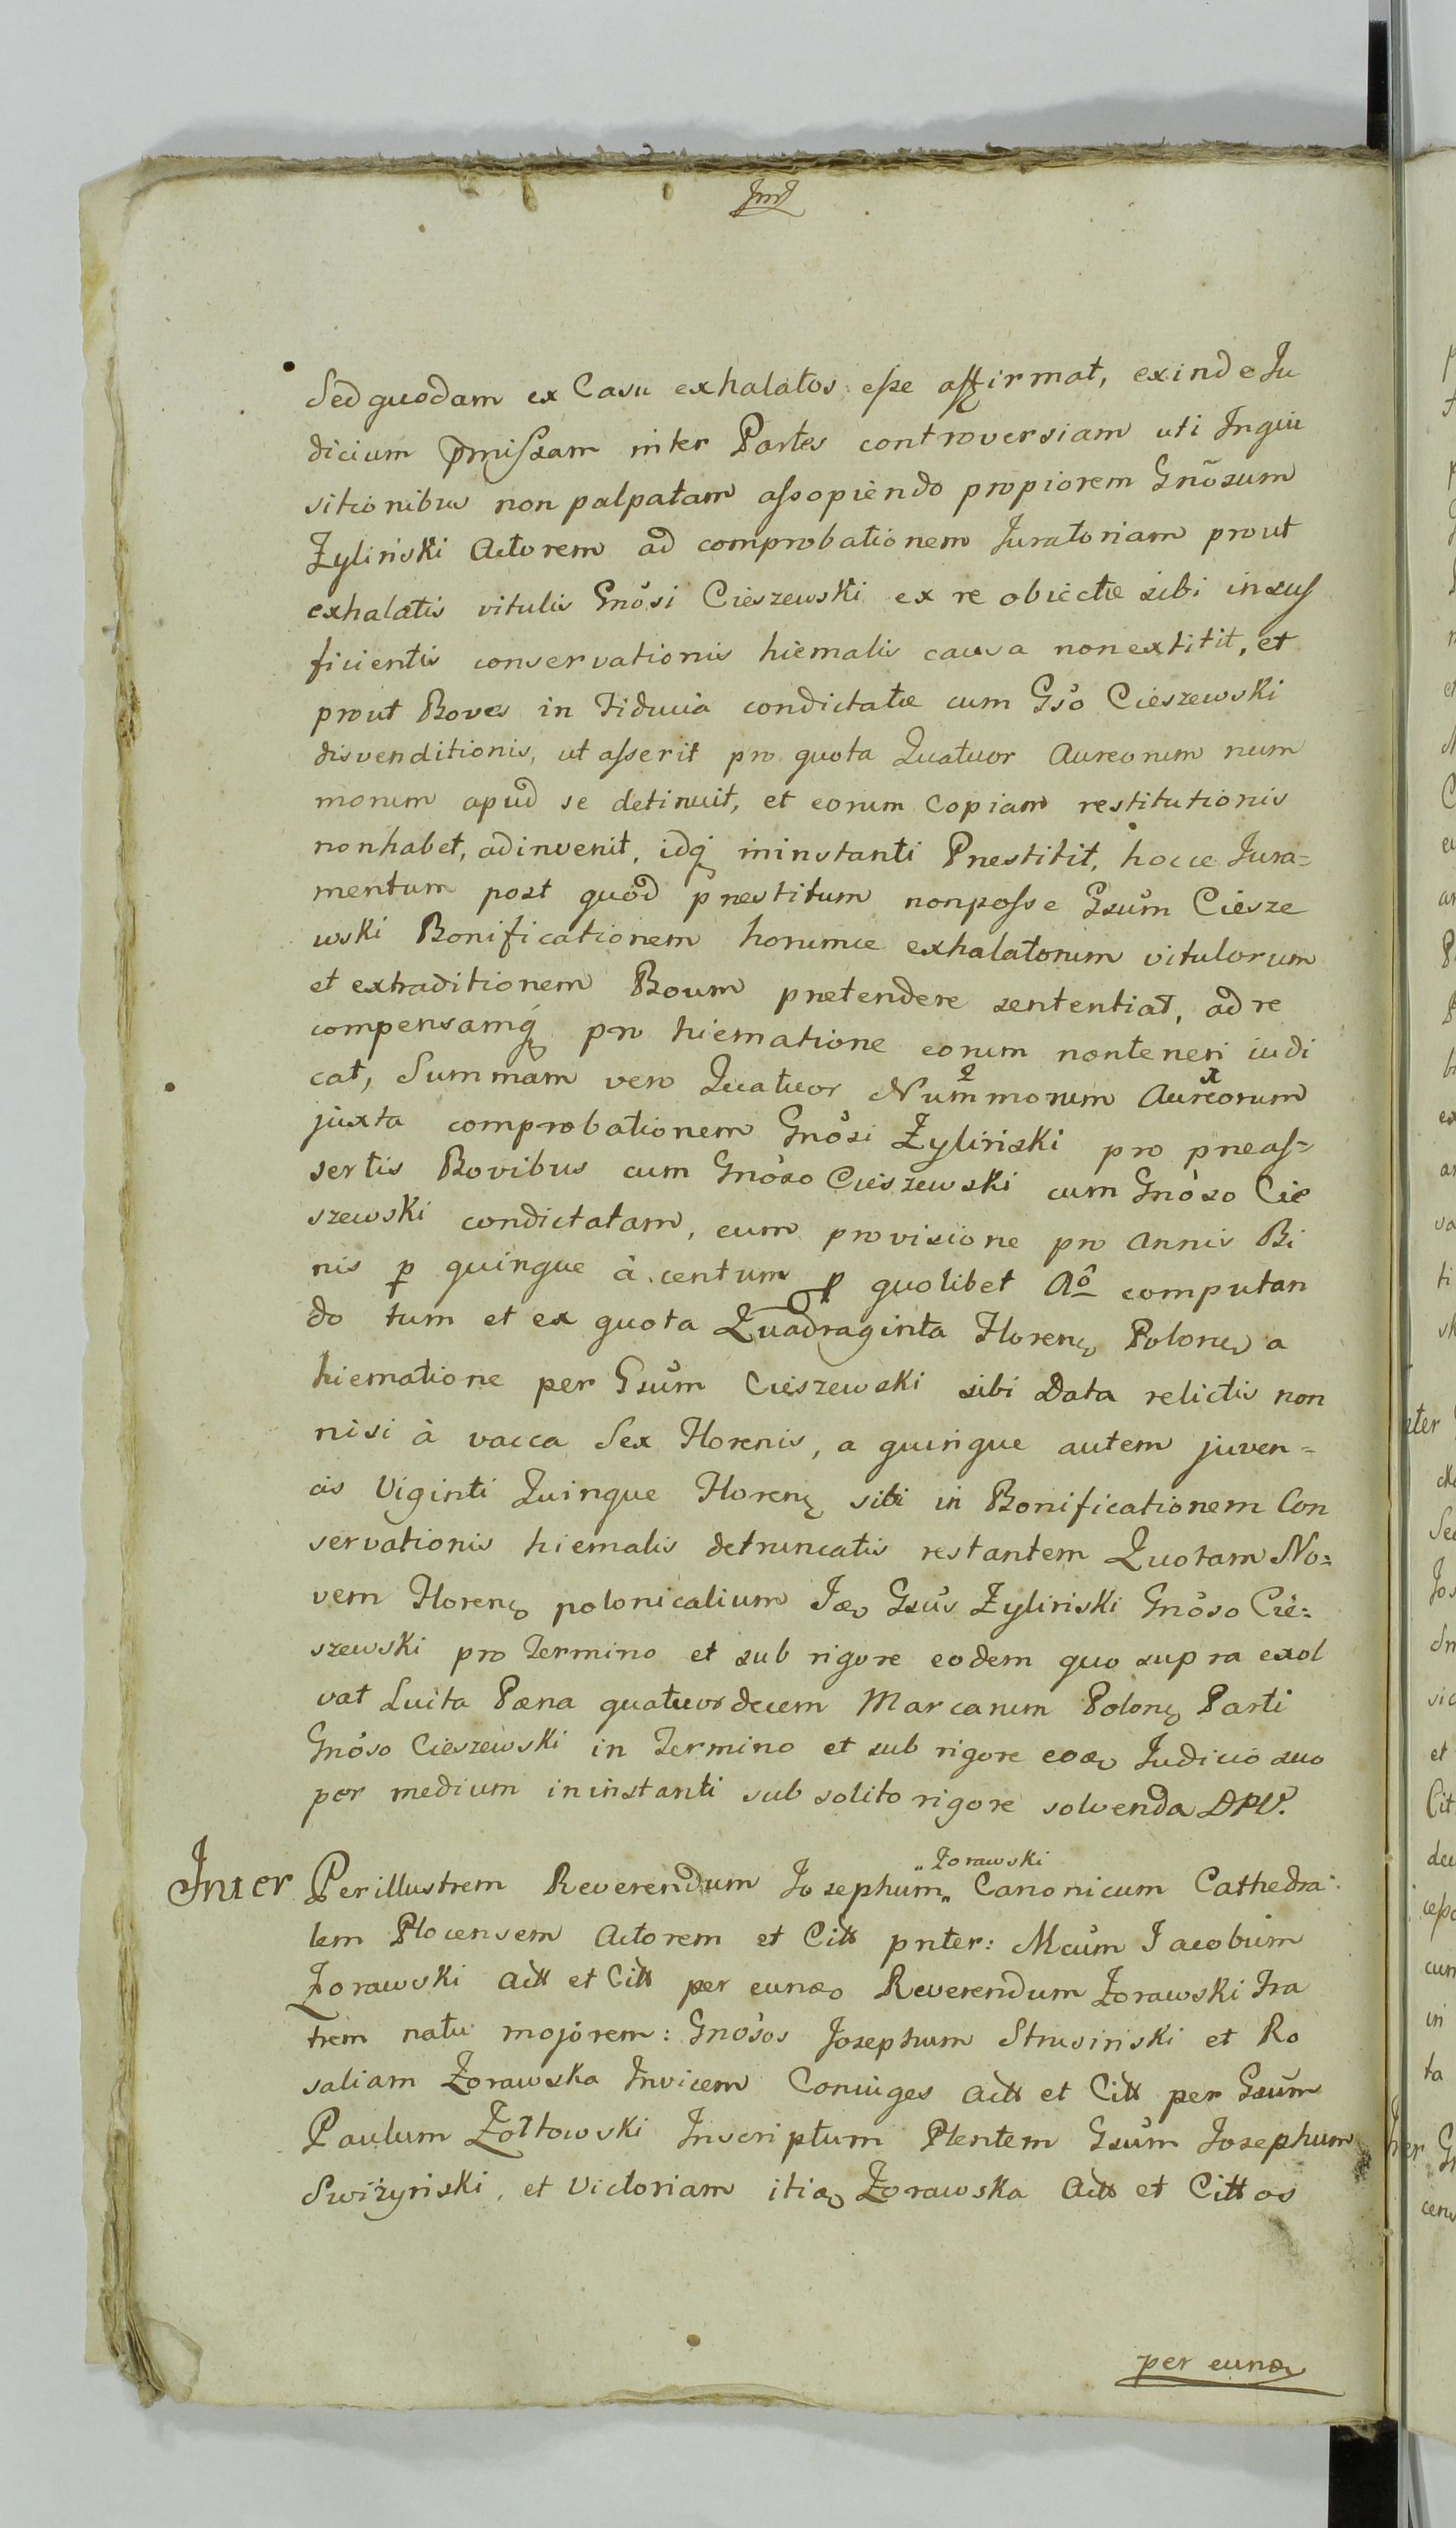 Sed quodam ex Casu exhalatos eſse aſſirmat, exinde Ju
dicium pmiſsam inter Partes controversiam uti Inqui
sitionibus non palpatam aſsopiendo propiorem Gnõsum
Żyliński Actorem ad comprobationem Juratoriam prout
exhalatis vitulis Gnosi Cieszewski ex re obiectæ sibi insuf
ficientis conservationis hiemalis causa non extitit, et
prout Boves in Fiducia condictatæ cum Gso Cieszewski
disvenditionis, ut aſserit pro quota Quatuor Aureorum num
morum apud se detinuit, et eorum Copiam restitutionis
non habet, adinvenit, idq in instanti Prestitit, hocce Jura=
mentum post quod prestitum non poſse Gsum Ciesze
wski Bonificationem horumce exhalatorum vitulorum
et extraditionem Boum pretendere sententiat, ad re
compensamq pro hiematione eorum non teneri iudi
cat, Summam vero Quatuor Nummorum Aureorum
juxta comprobationem Gnosi Żyliński pro preaſ=
sertis Bovibus cum Gnoso Cieszewski cum Gnoso Cie
szewski condictatam, cum provisione pro Annis Bi
nis p quinque à centum p quolibet Aô computan
do tum et ex quota Quadraginta Floren Polon a
hiematione per Gsum Cieszewski sibi Data relictis non
nisi à vacca Sex Florenis, a quinque autem juven=
cis Viginti Quinque Floren sibi in Bonificationem Con
servationis hiemalis detruncatis restantem Quotam No=
vem Floren polonicalium Gsus Żyliński Gnoso Cie=
szewski pro Termino et sub rigore eodem quo supra exol
vat Luita Pæna quatuordecem Marcarum Polon Parti
Gnoso Cieszewski in Termino et sub rigore Judicio suo
per medium in instanti sub solito rigore solvenda DPV.
Inter Perillustrem Reverendum Josephum „Żorawski„ Canonicum Cathedra
lem Plocensem Actorem et Citt pnter: Mcum Jacobum
Żorawski Actt et Citt per eund Reverendum Żorawski Fra
trem natu majorem: Gnosos Josephum Strusiński et Ro
saliam Żorawska Invicem Coniuges Actt et Citt per Gsum
Paulum Żołtowski Inscriptum Plentem Gsum Josephum
Swiżyński, et Victoriam Żorawska Actt et Cittos
per eund